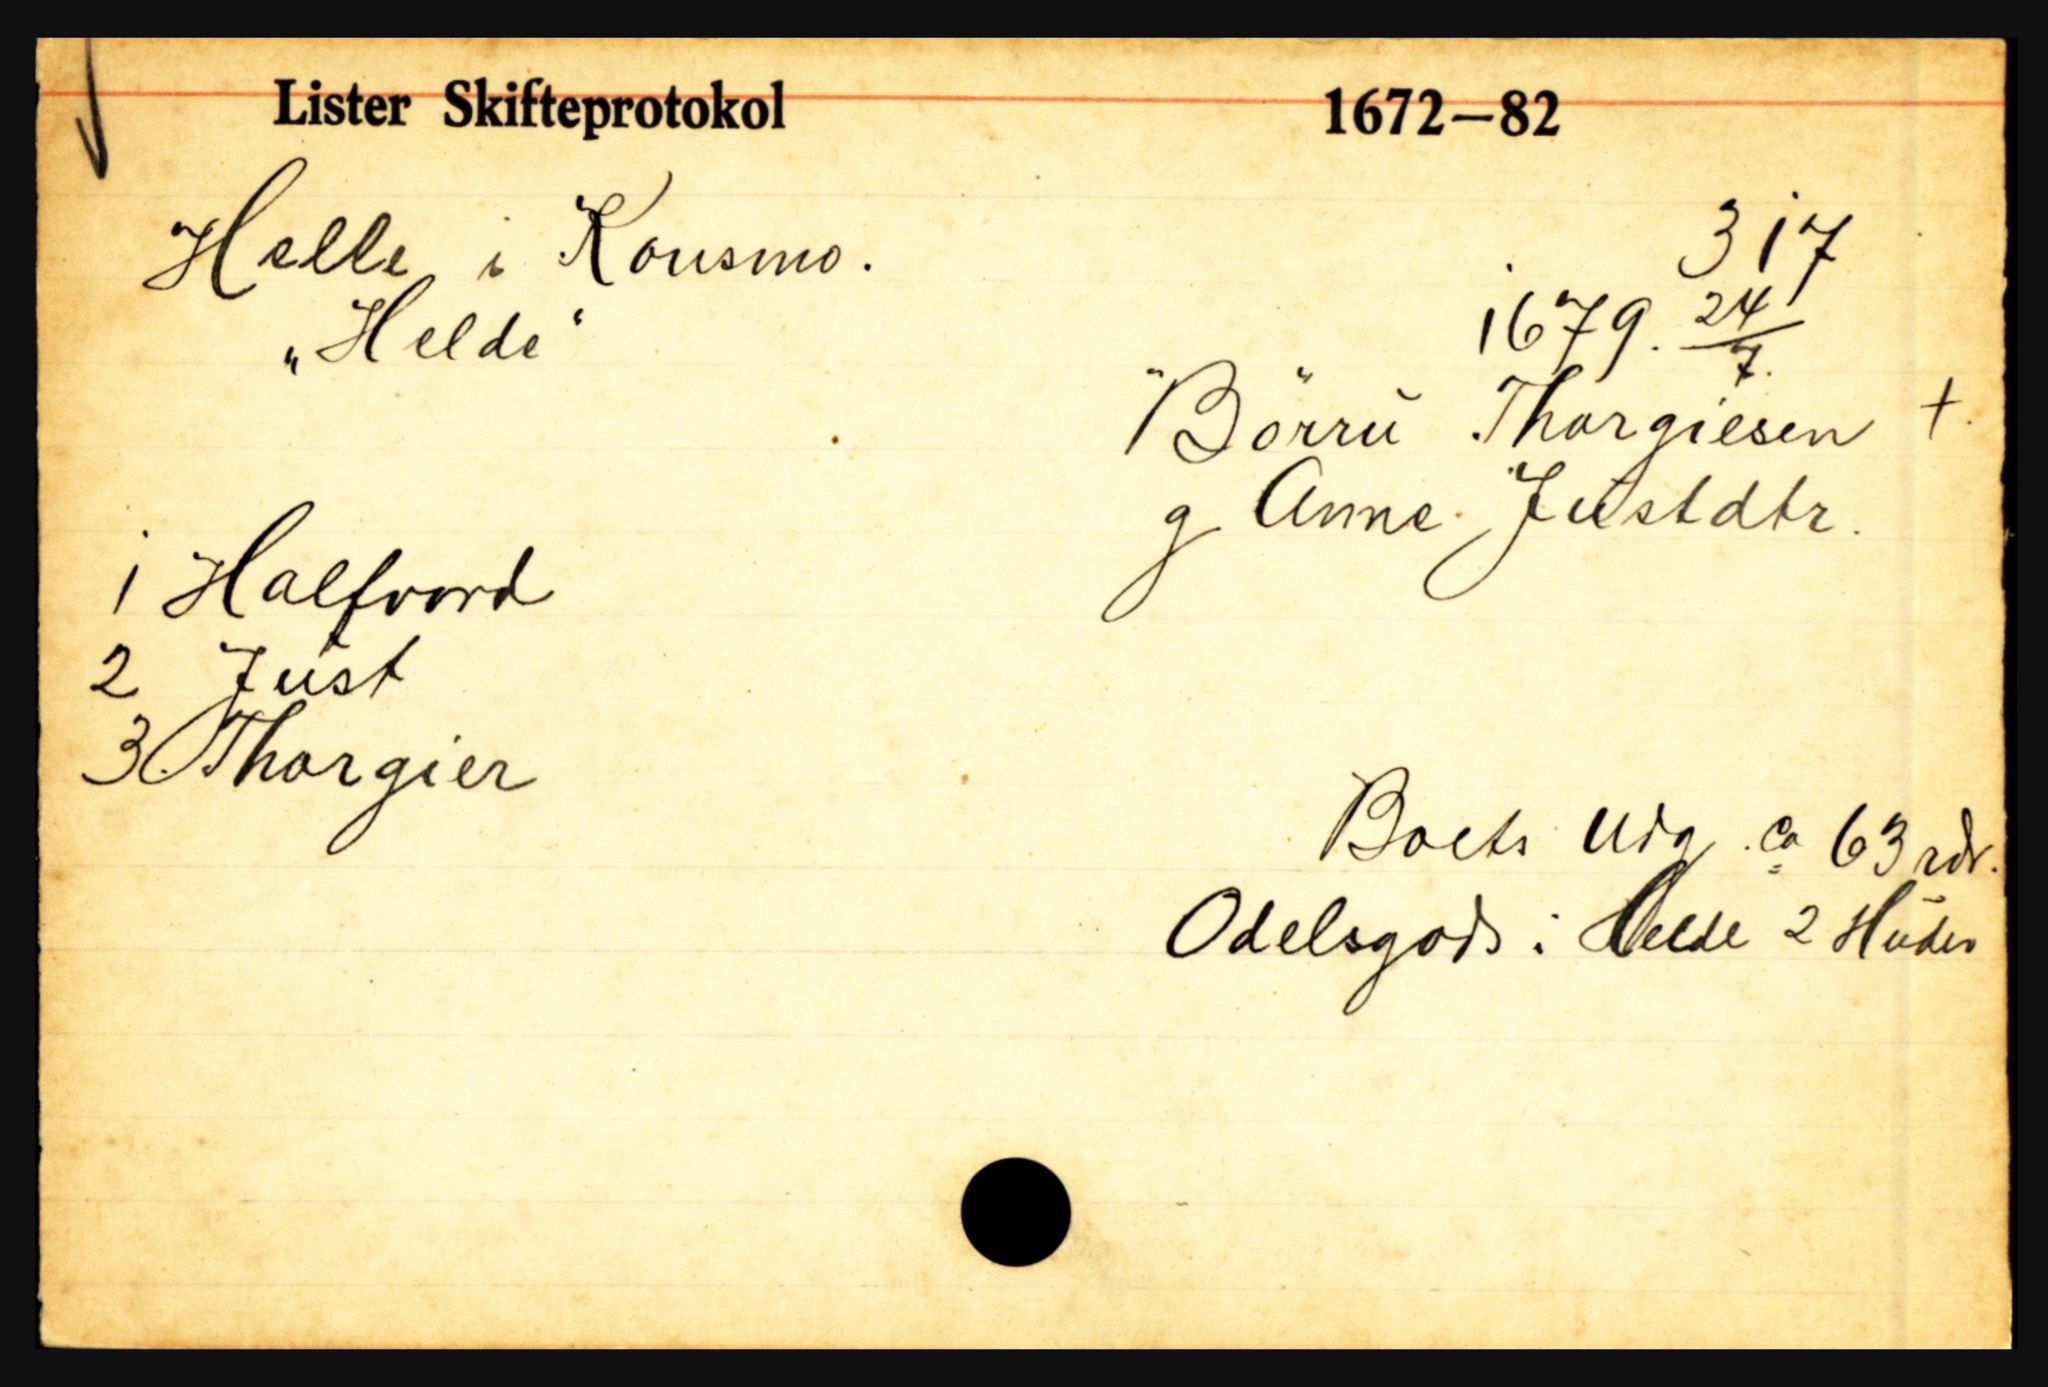 Lister Skifteprotokol 1672—82
Helle i Konsmo. 317
„Helde" 1679. 24/7.
"Börru" Thorgiesen +.
g Anne Justdtr.
1 Halfvord
2 Just
3 Thorgier
Boets Udg. ca 63 rdr.
Odelsgods i Helde 2 Huder